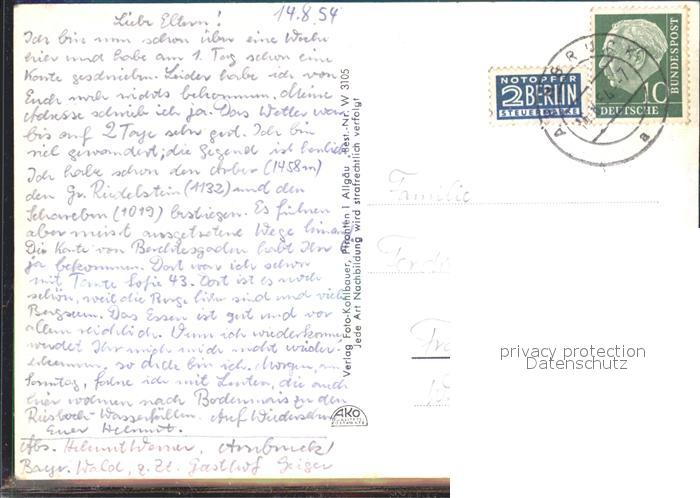 14.8.54
Liebe Eltern!
Ich bin nun schon über eine Woche
hier und habe am 1. Tag schon eine
Karte geschrieben. Leider habe ich von
Euch noch nichts bekommen. Meine
Adresse schrieb ich ja. Das Wetter war
bis auf 2 Tage sehr gut. Ich bin
viel gewandert; die Gegend ist herrlich.
Ich habe schon den Arber (1458m)
den Gr. Riedelstein (1132) und den
Schareben (1019) bestiegen. Es führen
aber meist ausgetretene Wege hinauf.
Die Karte von Berchtesgaden habt Ihr
ja bekommen. Dort war ich schon
mit Tante Sofie 43. Dort ist es noch
schön, weil die Berge höher sind und viele
Bergseen. Das Essen ist gut und vor
allem reichlich. Wenn ich wiederkomme
werdet Ihr mich nicht wieder-
erkennen, so dick bin ich. Morgen, am
Sonntag, fahre ich mit Leuten, die auch
hier wohnen nach Bodenmais zu den
Riesloch-Wasserfällen. Auf Wiedersehn
Euer Helmut.
Abs. Helmut Werner, Arnbruck/
Bayr. Wald, z. Zt. Gasthof Geiger
Verlag Foto-Kohlbauer, Pfronten i Allgäu „Best.-Nr. W 3105
Jede Art Nachbildung wird strafrechtlich verfolgt
AKO
NOTOPFER
2 BERLIN
STEUERMARKE
ARNBRUCK
a
DEUTSCHE
BUNDESPOST
10
Familie
privacy protection
Datenschutz